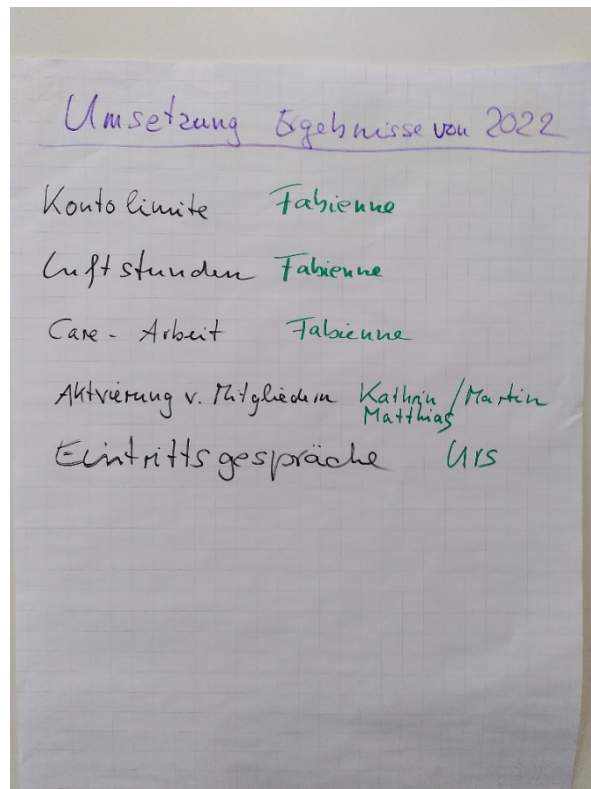 Umsetzung Ergebnisse von 2022
Kontolimite Fabienne
Luftstunden Fabienne
Care - Arbeit Fabienne
Aktvierung v. Mitgliedern Kathrin / Martin
Matthias
Eintrittsgespräche Urs